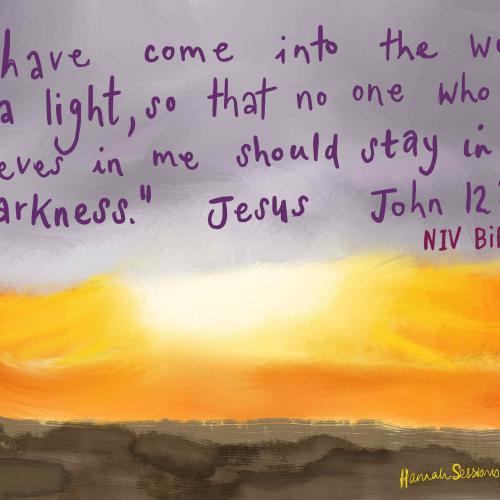 have come into the wo
a light, so that no one who
eves in me should stay in
arkness." Jesus John 12
NIV Bib
Hannah Sessions